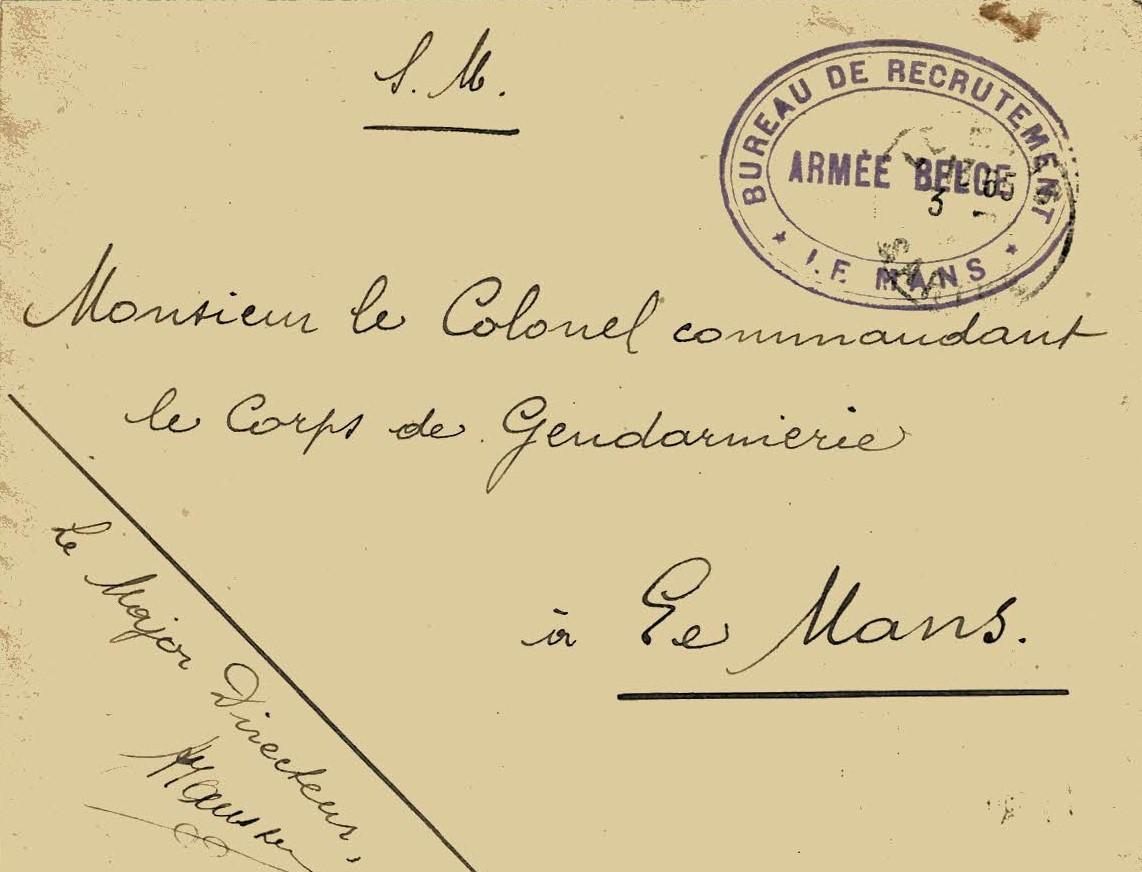 S. M.
BUREAU DE RECRUTEMENT
ARMÉE BELGE
LE MANS
3
Monsieur le Colonel commandant
le Corps de Gendarmerie
à Le Mans.
Le Major Directeur,